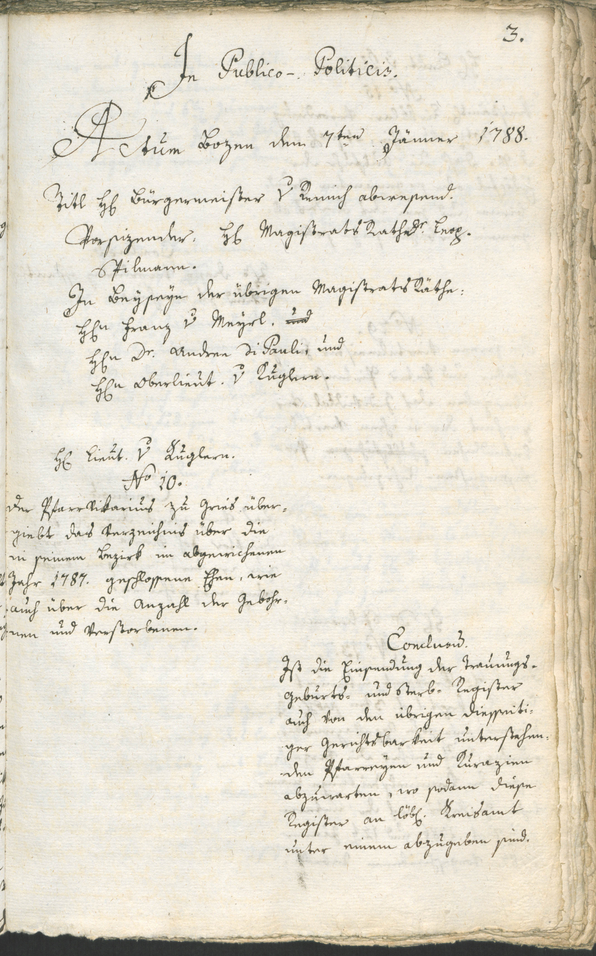 3.
In Publico-Politicis.
Actum Bozen den 7ten Jänner 1788.
Titl H: Bürgermeister v Remich abwesend.
Vorsizender, H: Magistrats Rath Dr. Leop.
Spilmann.
In Beyseyn der übrigen Magistrats Räthe:
Hn Franz v Meyrl. und
Hn Dr. Andree Di Pauli, und
Hn Oberlieut. v Kuglern.
H: Lieut. v Kuglern.
No 10.
Der Pfarr Vikarius zu Gries über-
giebt das Verzeichnis über die
in seinem Bezirk im abgewichenen
Jahr 1787. geschlossene Ehen, wie
auch über die Anzahl der Gebohr-
nen und Verstorbenen.
Conclusum.
Ist die Einsendung der Trauungs-
Geburts- und Sterb-Register
auch von den übrigen diesseiti-
ger Gerichtsbarkeit unterstehen-
den Pfarreyen und Kurazien
abzuwarten, wo sodann diese
Register an löbl. Kreisamt
unter einem abzugeben sind.